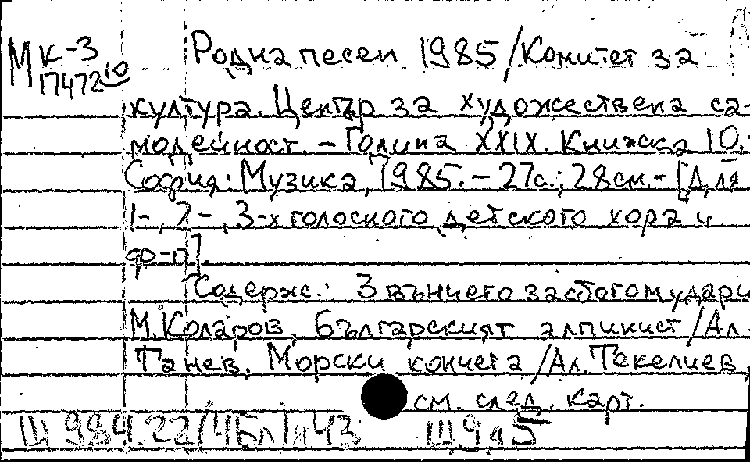 М К-3 17472 10
Родна песен 1985/Комитет за
култура. Център за художествена са-
модейност. – Година XXIX. Книжка 10.-
София: Музика, 1985. – 27с.; 28см. – [Для
1-, 2-, 3-х голосного детского хора и
ф-п].
Содерж.: Звънчето за сбогом удари
М. Коларов. Българският алпинист / Ал.
Танев. Морски кончета / Ал. Текелиев,
см. след. карт.
Щ 984.22(4Бл)я43 Щ.9я5